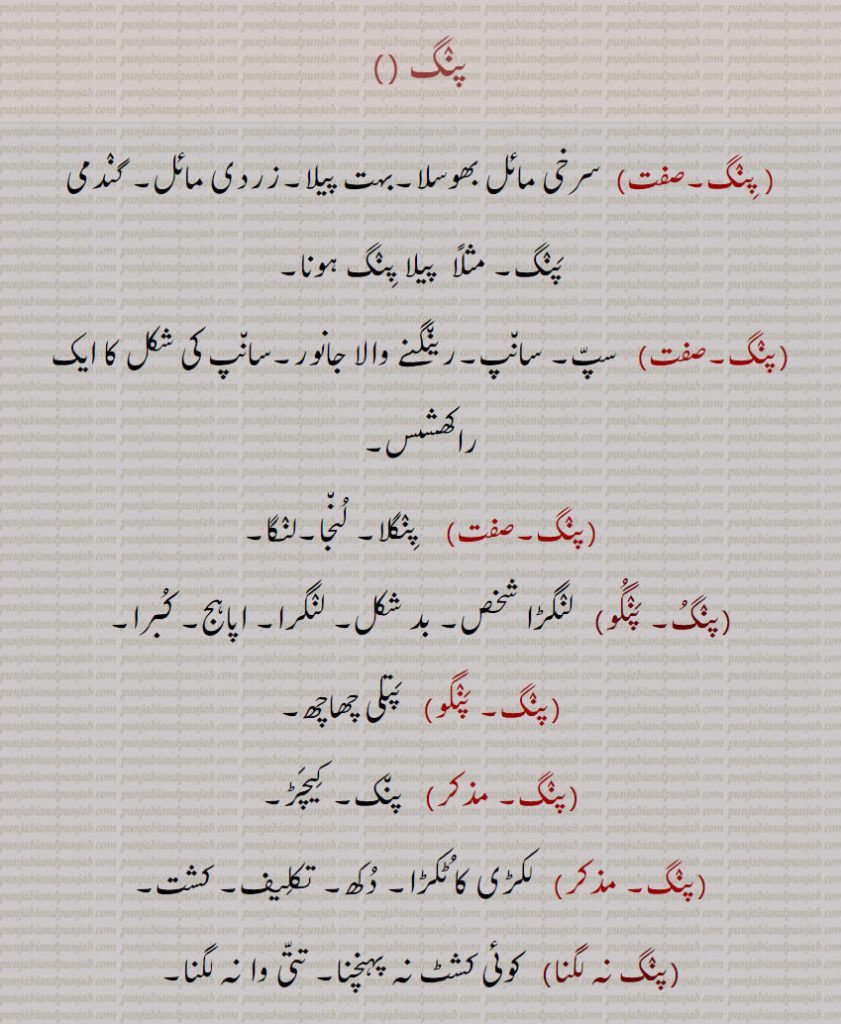 پنگ ()
(پِنْگ۔صفت) سرخی مائل بھوسلا۔بہت پیلا۔زردی مائل۔ گندمی
پَنْگ۔ مثلاً پیلا پِنْگ ہونا۔
(پنگ۔صفت) سپّ۔ سانپ۔رینگنے والا جانور۔سانپ کی شکل کا ایک
راکھشس۔
(پنگ۔صفت) پِنْگلا۔ لُنجا۔لنگا۔
(پنگُ۔ پَنْگُو) لنگڑا شخص۔ بد شکل۔ لنگرا۔ اپاہج۔ کُبرا۔
(پنگ۔ پَنْگو) پَتلی چھاچھ۔
(پنگ۔ مذکر) پنک۔ کِیچَڑ۔
(پنگ۔ مذکر) لکڑی کا ٹُکڑا۔ دُکھ۔ تکلِیف۔ کشت۔
(پنگ نہ لگنا) کوئی کشٹ نہ پہنچنا۔ تتّی وا نہ لگنا۔